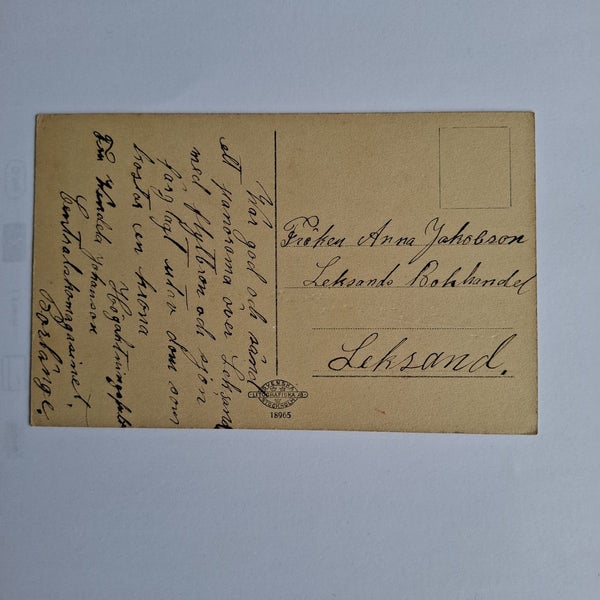 Var god och sänd
ett panorama över Leksand
med flytbron och sjön
färglagt utav dom som
kostar en krona
Högaktningsfullt
Johanson
Centralskomagasinet,
Borlänge.
Fröken Anna Jakobson
Leksands Bokhandel
Leksand.
SVENSKA
LITOGRAFISKA AB
STOCKHOLM
18965